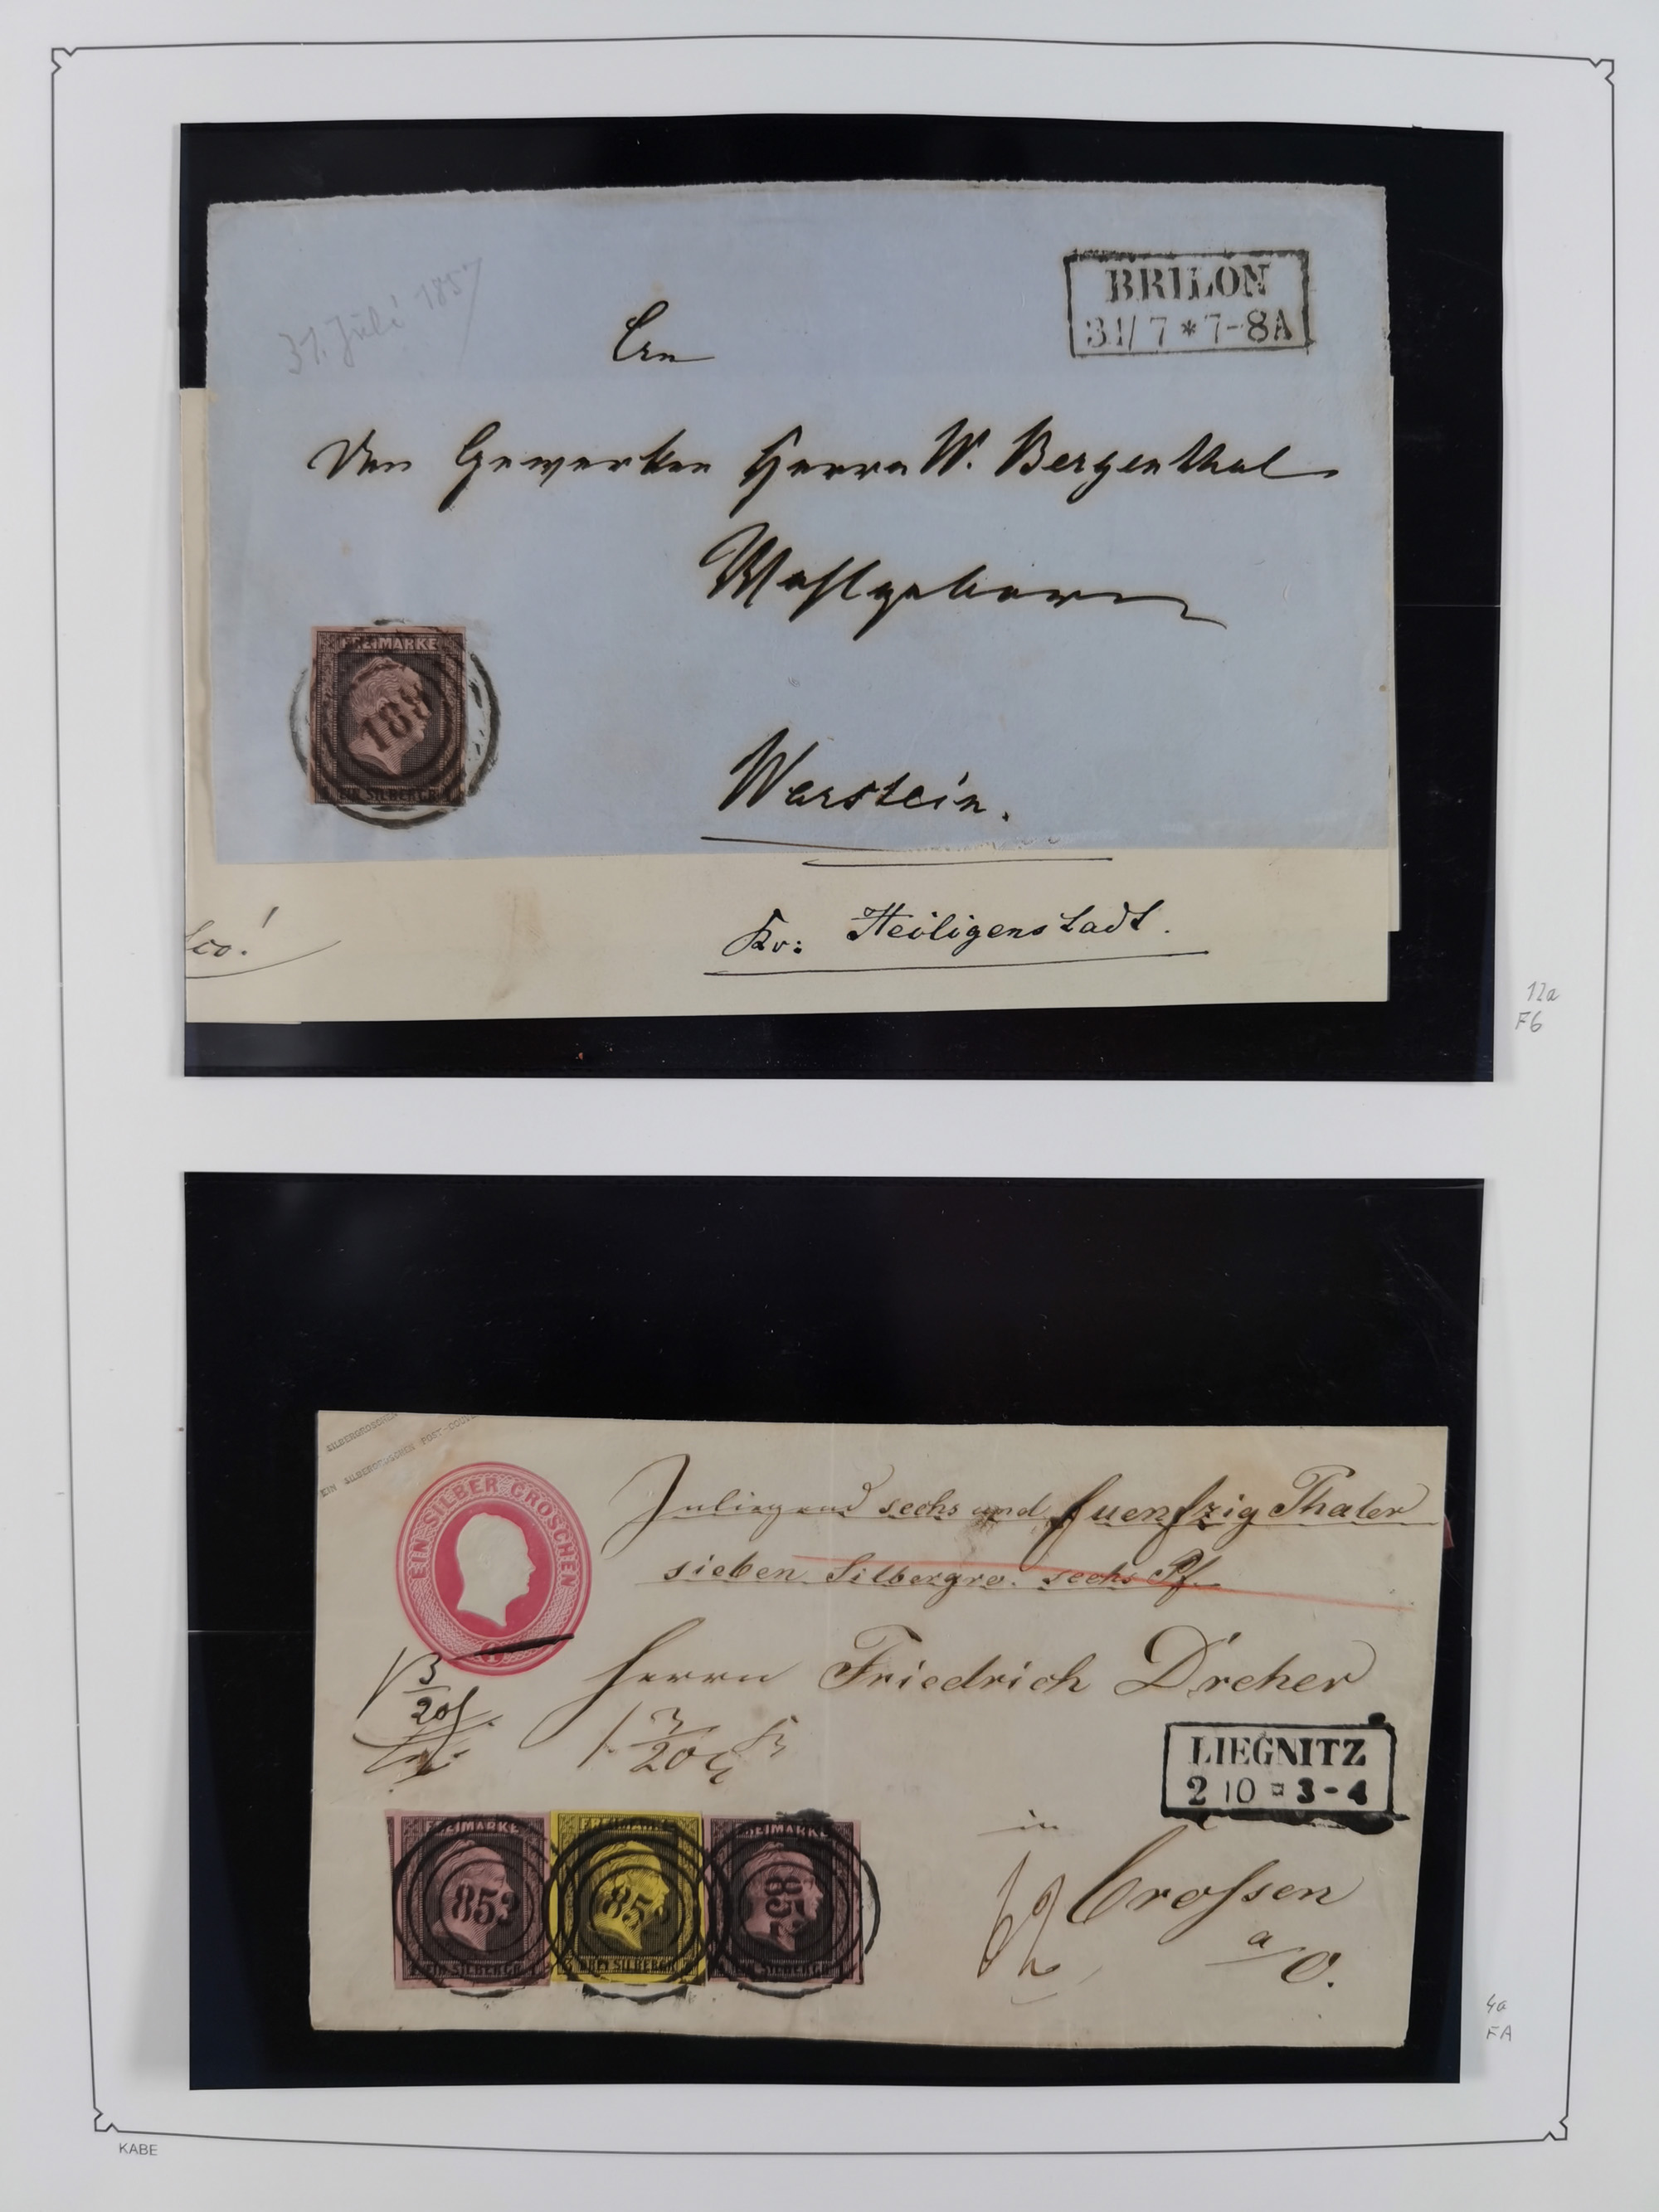 31. Juli 1857
BRILON
31/7 * 7-8A
Den Gewerken Herrn W. Bergenthal
Wohlgeboren
FREIMARKE
188
EIN SILBERGR.
Warstein.
Kr: Heiligenstadt.
12a
F6
SILBERGROSCHEN
EIN SILBERGROSCHEN POST-COUVE
EIN SILBER GROSCHEN
1
Inliegend sechs und fuenfzig Thaler
sieben Silbergro. sechs Pf.
Herrn Friedrich Dreher
3/20
3/20
LIEGNITZ
2 10 ¤ 3-4
in
Crossen
a/O.
FREIMARKE
853
1 EIN SILBERGR. 1
FREIMARKE
85
SILBERGR.
FREIMARKE
853
EIN SILBERGR.
4a
FA
KABE